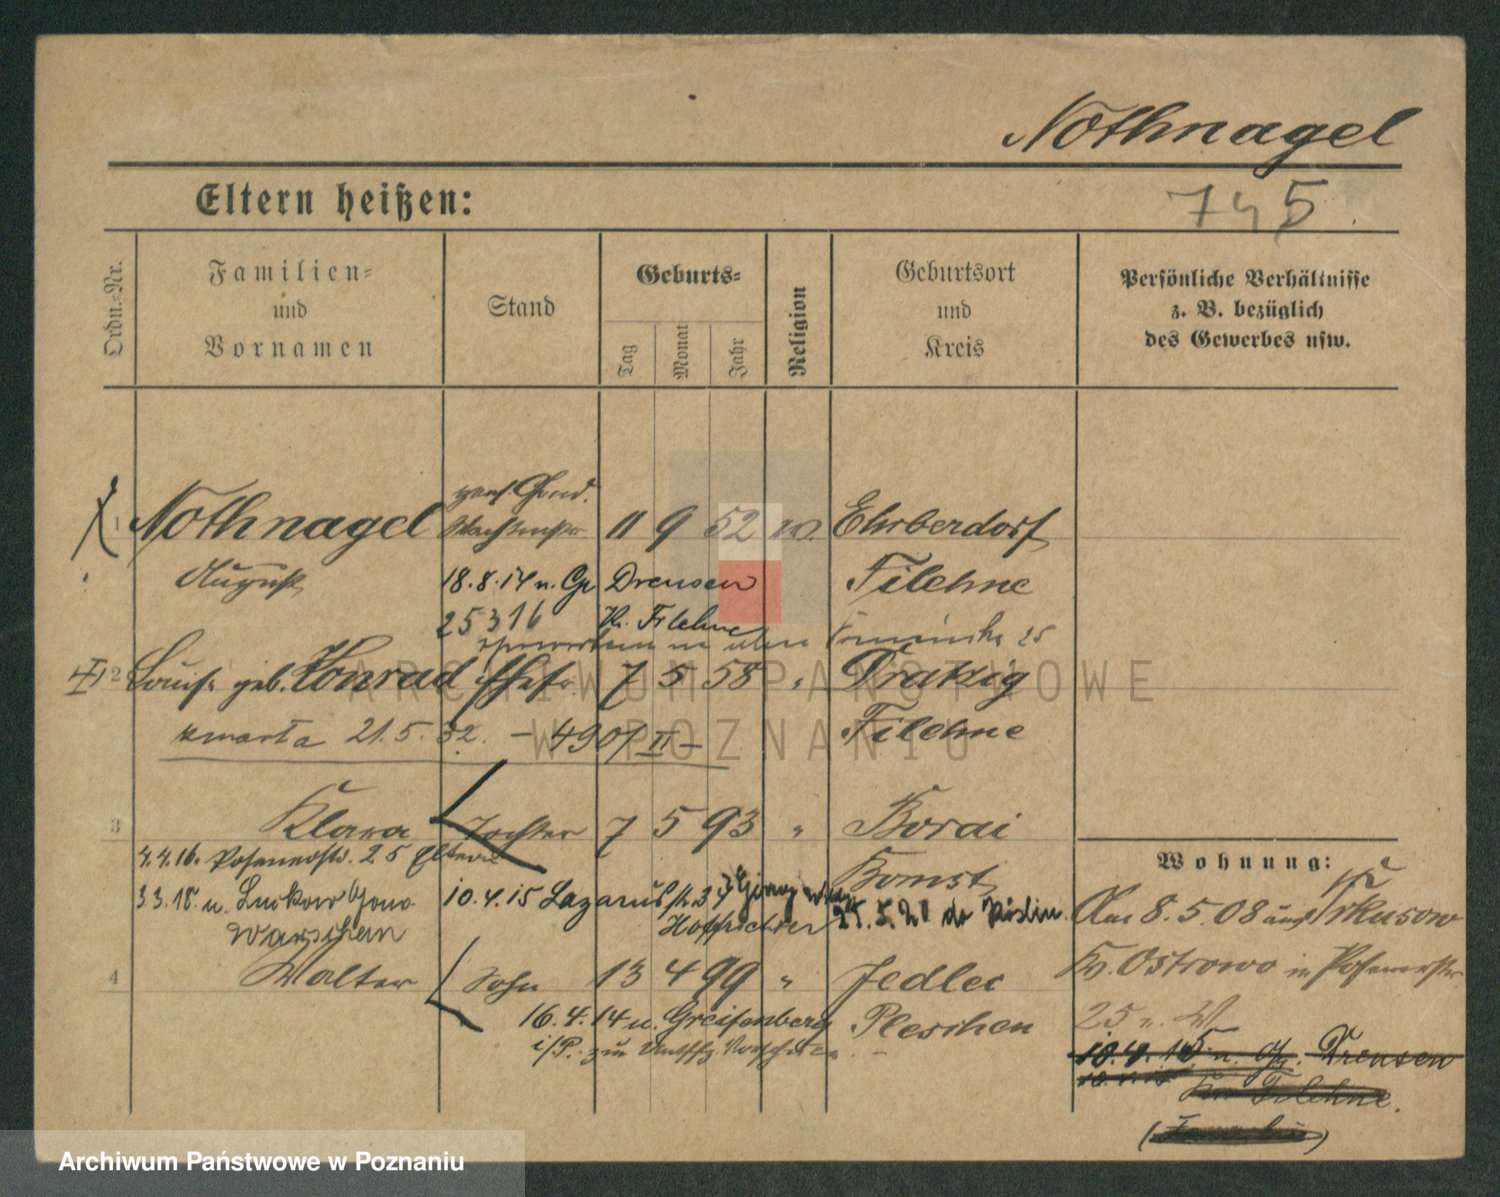 Nothnagel
Eltern heißen:
745
Ordn.-Nr.
Familien-
und
Vornamen
Stand
Geburts-
Tag
Monat
Jahr
Religion
Geburtsort
und
Kreis
Persönliche Verhältnisse
z. B. bezüglich
des Gewerbes usw.
1 Nothnagel 11 9 52 Ehrberdorf
August 18.8.14 n. Gr Drensen Filehne
25 3 16 Kr. Filehne
2 geb. Konrad Ehefr. 7 5 58 " Dratzig
zmarła 21.5.32. – 4907 II – Filehne
3 Klara Tochter 7 5 93 " Borai
4.4.16. Posenerstr. 25 Eltern Bomst
3.3.18. n. 10.4.15 Lazarus
Warschau Hoffrichter
4 Walter Sohn 13 4 99 " Jedlec
16.4.14 n. Greifenberg Pleschen
i/P. zur
Wohnung:
Am 8.5.08 aus
Kr. Ostrowo in Posenerstr.
25 n. W
10.4.15 n. Gr. Drensen
Kr. Filehne.
ARCHIWUM PAŃSTWOWE
W POZNANIU
Archiwum Państwowe w Poznaniu